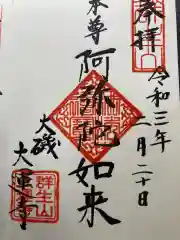 奉拝
令和三年
二月二十日
本尊
阿弥陀如来
大磯
大運寺
群生山